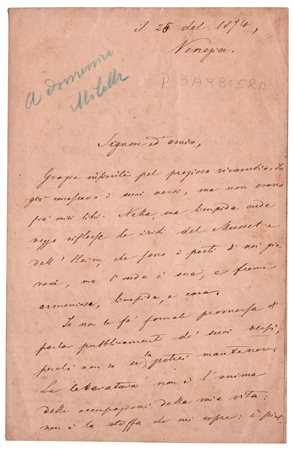 il 25 del 1874,
Venezia.
A Domenico
Milelli
R. BARBIERA
Signore ed amico,
Grazie infinite pel prezioso ricambio. Io
già conoscevo i suoi versi, ma non erano
fra' miei libri. Nella sua limpida onda
veggo riflesse le iridi del Musset e
dell'Heine, che sono i poeti di noi gio
vani, ma l'onda è sua, e freme
armoniosa, limpida, e cara.
Io non le fo' formal promessa di
parlar pubblicamente de' suoi versi,
perché non so se la potrei mantenere.
La letteratura non è l'anima
delle occupazioni della mia vita;
non è la stoffa che mi copre: è